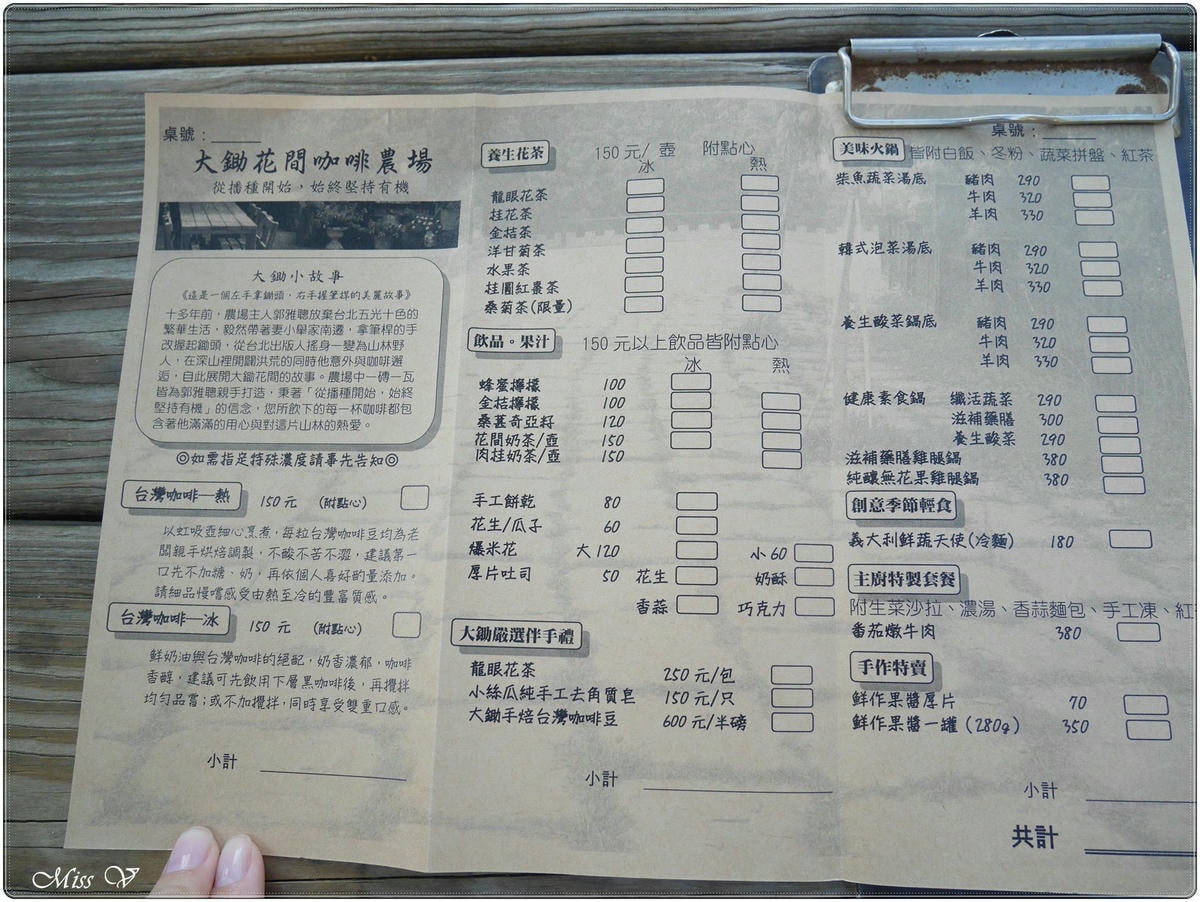 桌號：
大鋤花間咖啡農場
從播種開始，始終堅持有機
大鋤小故事
《這是一個左手拿鋤頭，右手握筆桿的美麗故事》
十多年前，農場主人郭雅聰放棄台北五光十色的
繁華生活，毅然帶著妻小舉家南遷，拿筆桿的手
改握起鋤頭，從台北出版人搖身一變為山林野
人，在深山裡開闢洪荒的同時他意外與咖啡邂
逅，自此展開大鋤花間的故事。農場中一磚一瓦
皆為郭雅聰親手打造，秉著「從播種開始，始終
堅持有機」的信念，您所飲下的每一杯咖啡都包
含著他滿滿的用心與對這片山林的熱愛。
◎如需指定特殊濃度請事先告知◎
台灣咖啡—熱 150元 (附點心)
以虹吸壺細心烹煮，每粒台灣咖啡豆均為老
闆親手烘焙調製，不酸不苦不澀，建議第一
口先不加糖、奶，再依個人喜好酌量添加。
請細品慢嚐感受由熱至冷的豐富質感。
台灣咖啡—冰 150元 (附點心)
鮮奶油與台灣咖啡的絕配，奶香濃郁，咖啡
香醇，建議可先飲用下層黑咖啡後，再攪拌
均勻品嘗；或不加攪拌，同時享受雙重口感。
小計
養生花茶 150元/ 壺 附點心
冰 熱
龍眼花茶
桂花茶
金桔茶
洋甘菊茶
水果茶
桂圓紅棗茶
桑菊茶(限量)
飲品。果汁 150元以上飲品皆附點心
冰 熱
蜂蜜檸檬 100
金桔檸檬 100
桑葚奇亞籽 120
花間奶茶/壺 150
肉桂奶茶/壺 150
手工餅乾 80
花生/瓜子 60
爆米花 大120 小60
厚片吐司 50 花生 奶酥
香蒜 巧克力
大鋤嚴選伴手禮
龍眼花茶 250元/包
小絲瓜純手工去角質皂 150元/只
大鋤手焙台灣咖啡豆 600元/半磅
小計
桌號：
美味火鍋 皆附白飯、冬粉、蔬菜拼盤、紅茶
柴魚蔬菜湯底 豬肉 290
牛肉 320
羊肉 330
韓式泡菜湯底 豬肉 290
牛肉 320
羊肉 330
養生酸菜鍋底 豬肉 290
牛肉 320
羊肉 330
健康素食鍋 纖活蔬菜 290
滋補藥膳 300
養生酸菜 290
滋補藥膳雞腿鍋 380
純釀無花果雞腿鍋 380
創意季節輕食
義大利鮮蔬天使(冷麵) 180
主廚特製套餐
附生菜沙拉、濃湯、香蒜麵包、手工凍、紅
番茄燉牛肉 380
手作特賣
鮮作果醬厚片 70
鮮作果醬一罐(280g) 350
小計
共計
Miss V